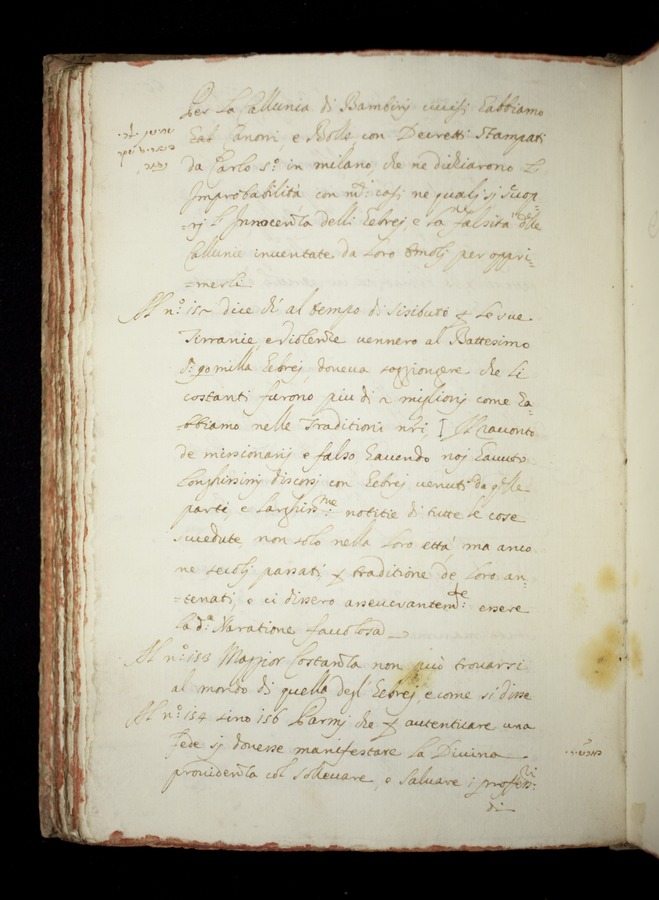 Per La Callunia di Bambinj uccisi habbiamo
Canoni, e Bolle con Decretti Stampati
da Carlo 5.º in milano che ne dichiarono L'
Improbabilità con casi ne qualj si scop=
=rj L'Innocenza delli Eebrej e La falsità delle
Callunie inventate da Loro Emolj per oppri=
=merli
Al n.º 152 dice ch' al tempo di Sisibuto Le sue
Tirranie, e violenze vennero al Battesimo
90 milla Eebrej, doveva soggiongere che Li
costanti furono piu di 2 miglionj come ha=
=bbiamo nelle Traditioni nri, Il racconto
de missionarij e falso havendo noj havuto
Longhissimj discorsi con Eebrej venuti da qlle
parti, e Larghissme notitie di tutte le cose
succedute, non solo nella Loro ettà, ma anco
ne secolj passati traditione de Loro an=
=tenati, e ci dissero asseverantemte essere
La da Naratione favolosa
Al n.º 153 Maggior Costanza non può trovarsi
al mondo di quella degl' Eebrej, e come si disse
Al n.º 154 sino 156 Parmj che autenticare una
fede si dovesse manifestare La Divina
providenza col sollevare, e Salvare i
di